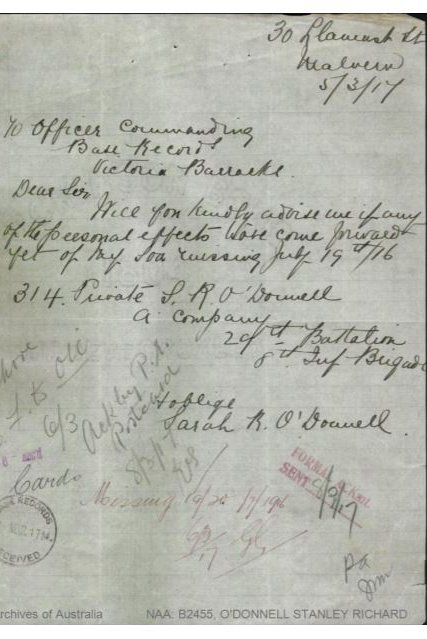 30
Malvern
5/3/17
To Officer Commanding
Base Records
Victoria Barracks
Dear Sir
Will you kindly advise me if any
of the personal effects have come forward
yet of my Son missing July 19th/16
314. Private S. R. O'Donnell
A Company
29th Battalion
8th Inf Brigade
& oblige
Sarah R. O'Donnell.
6/3
Ack by P.A.
Postcard
8/3/17
Cards
RECORDS
RECEIVED
Missing
FORMAL
SENT
rchives of Australia
NAA: B2455, O'DONNELL STANLEY RICHARD